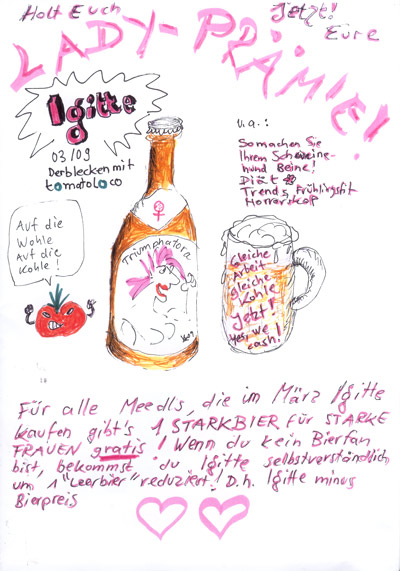 Holt Euch Jetzt!
Eure
LADY-PRÄMIE!
Igitte
03/09
Derblecken mit
tomatoloco
u.a.:
So machen Sie
Ihrem Schweine-
hund Beine!
Diät
Trends, Frühlingsfit
Horrorskop
Auf die
Wohle
Auf die
Kohle!
Triumphatora
Gleiche
Arbeit
gleiche
Kohle
jetzt!
Yes, we
cash!
Für alle Meedls, die im März Igitte
kaufen gibt's 1 STARKBIER FÜR STARKE
FRAUEN gratis! Wenn du kein Bierfan
bist, bekommst du Igitte selbstverständlich
um 1 "Leerbier" reduziert! D.h. Igitte minus
Bierpreis